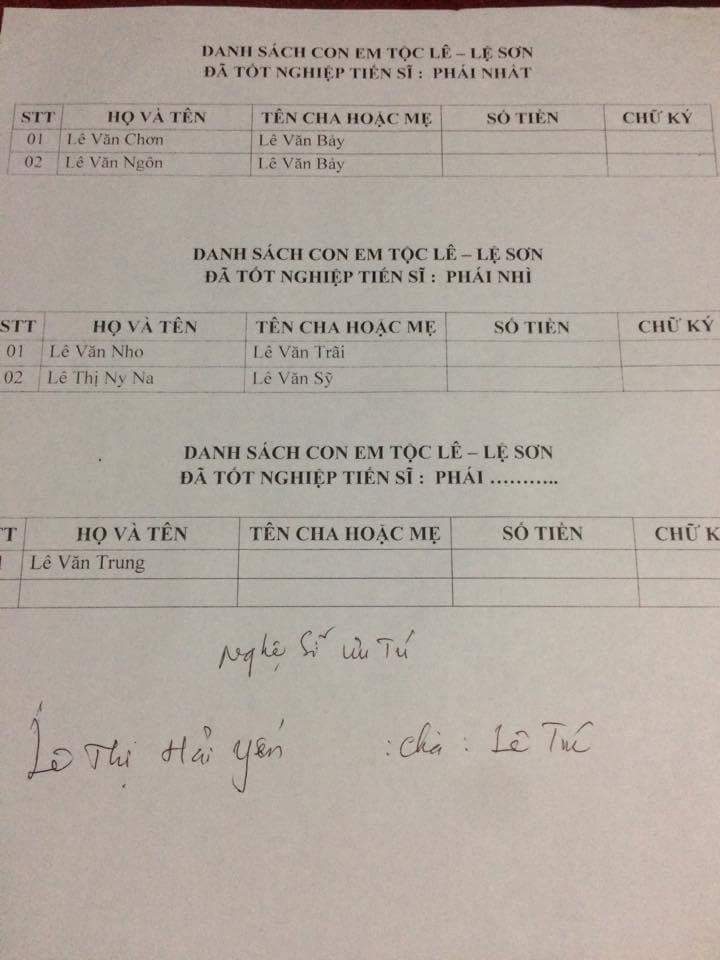 DANH SÁCH CON EM TỘC LÊ – LỆ SƠN
ĐÃ TỐT NGHIỆP TIẾN SĨ : PHÁI NHẤT
STT HỌ VÀ TÊN TÊN CHA HOẶC MẸ SỐ TIỀN CHỮ KÝ
01 Lê Văn Chơn Lê Văn Bảy
02 Lê Văn Ngôn Lê Văn Bảy
DANH SÁCH CON EM TỘC LÊ – LỆ SƠN
ĐÃ TỐT NGHIỆP TIẾN SĨ : PHÁI NHÌ
STT HỌ VÀ TÊN TÊN CHA HOẶC MẸ SỐ TIỀN CHỮ KÝ
01 Lê Văn Nho Lê Văn Trãi
02 Lê Thị Ny Na Lê Văn Sỹ
DANH SÁCH CON EM TỘC LÊ – LỆ SƠN
ĐÃ TỐT NGHIỆP TIẾN SĨ : PHÁI ………..
TT HỌ VÀ TÊN TÊN CHA HOẶC MẸ SỐ TIỀN CHỮ K
1 Lê Văn Trung
Nghệ Sĩ Ưu Tú
Lê Thị Hải Yến : cha : Lê Túc